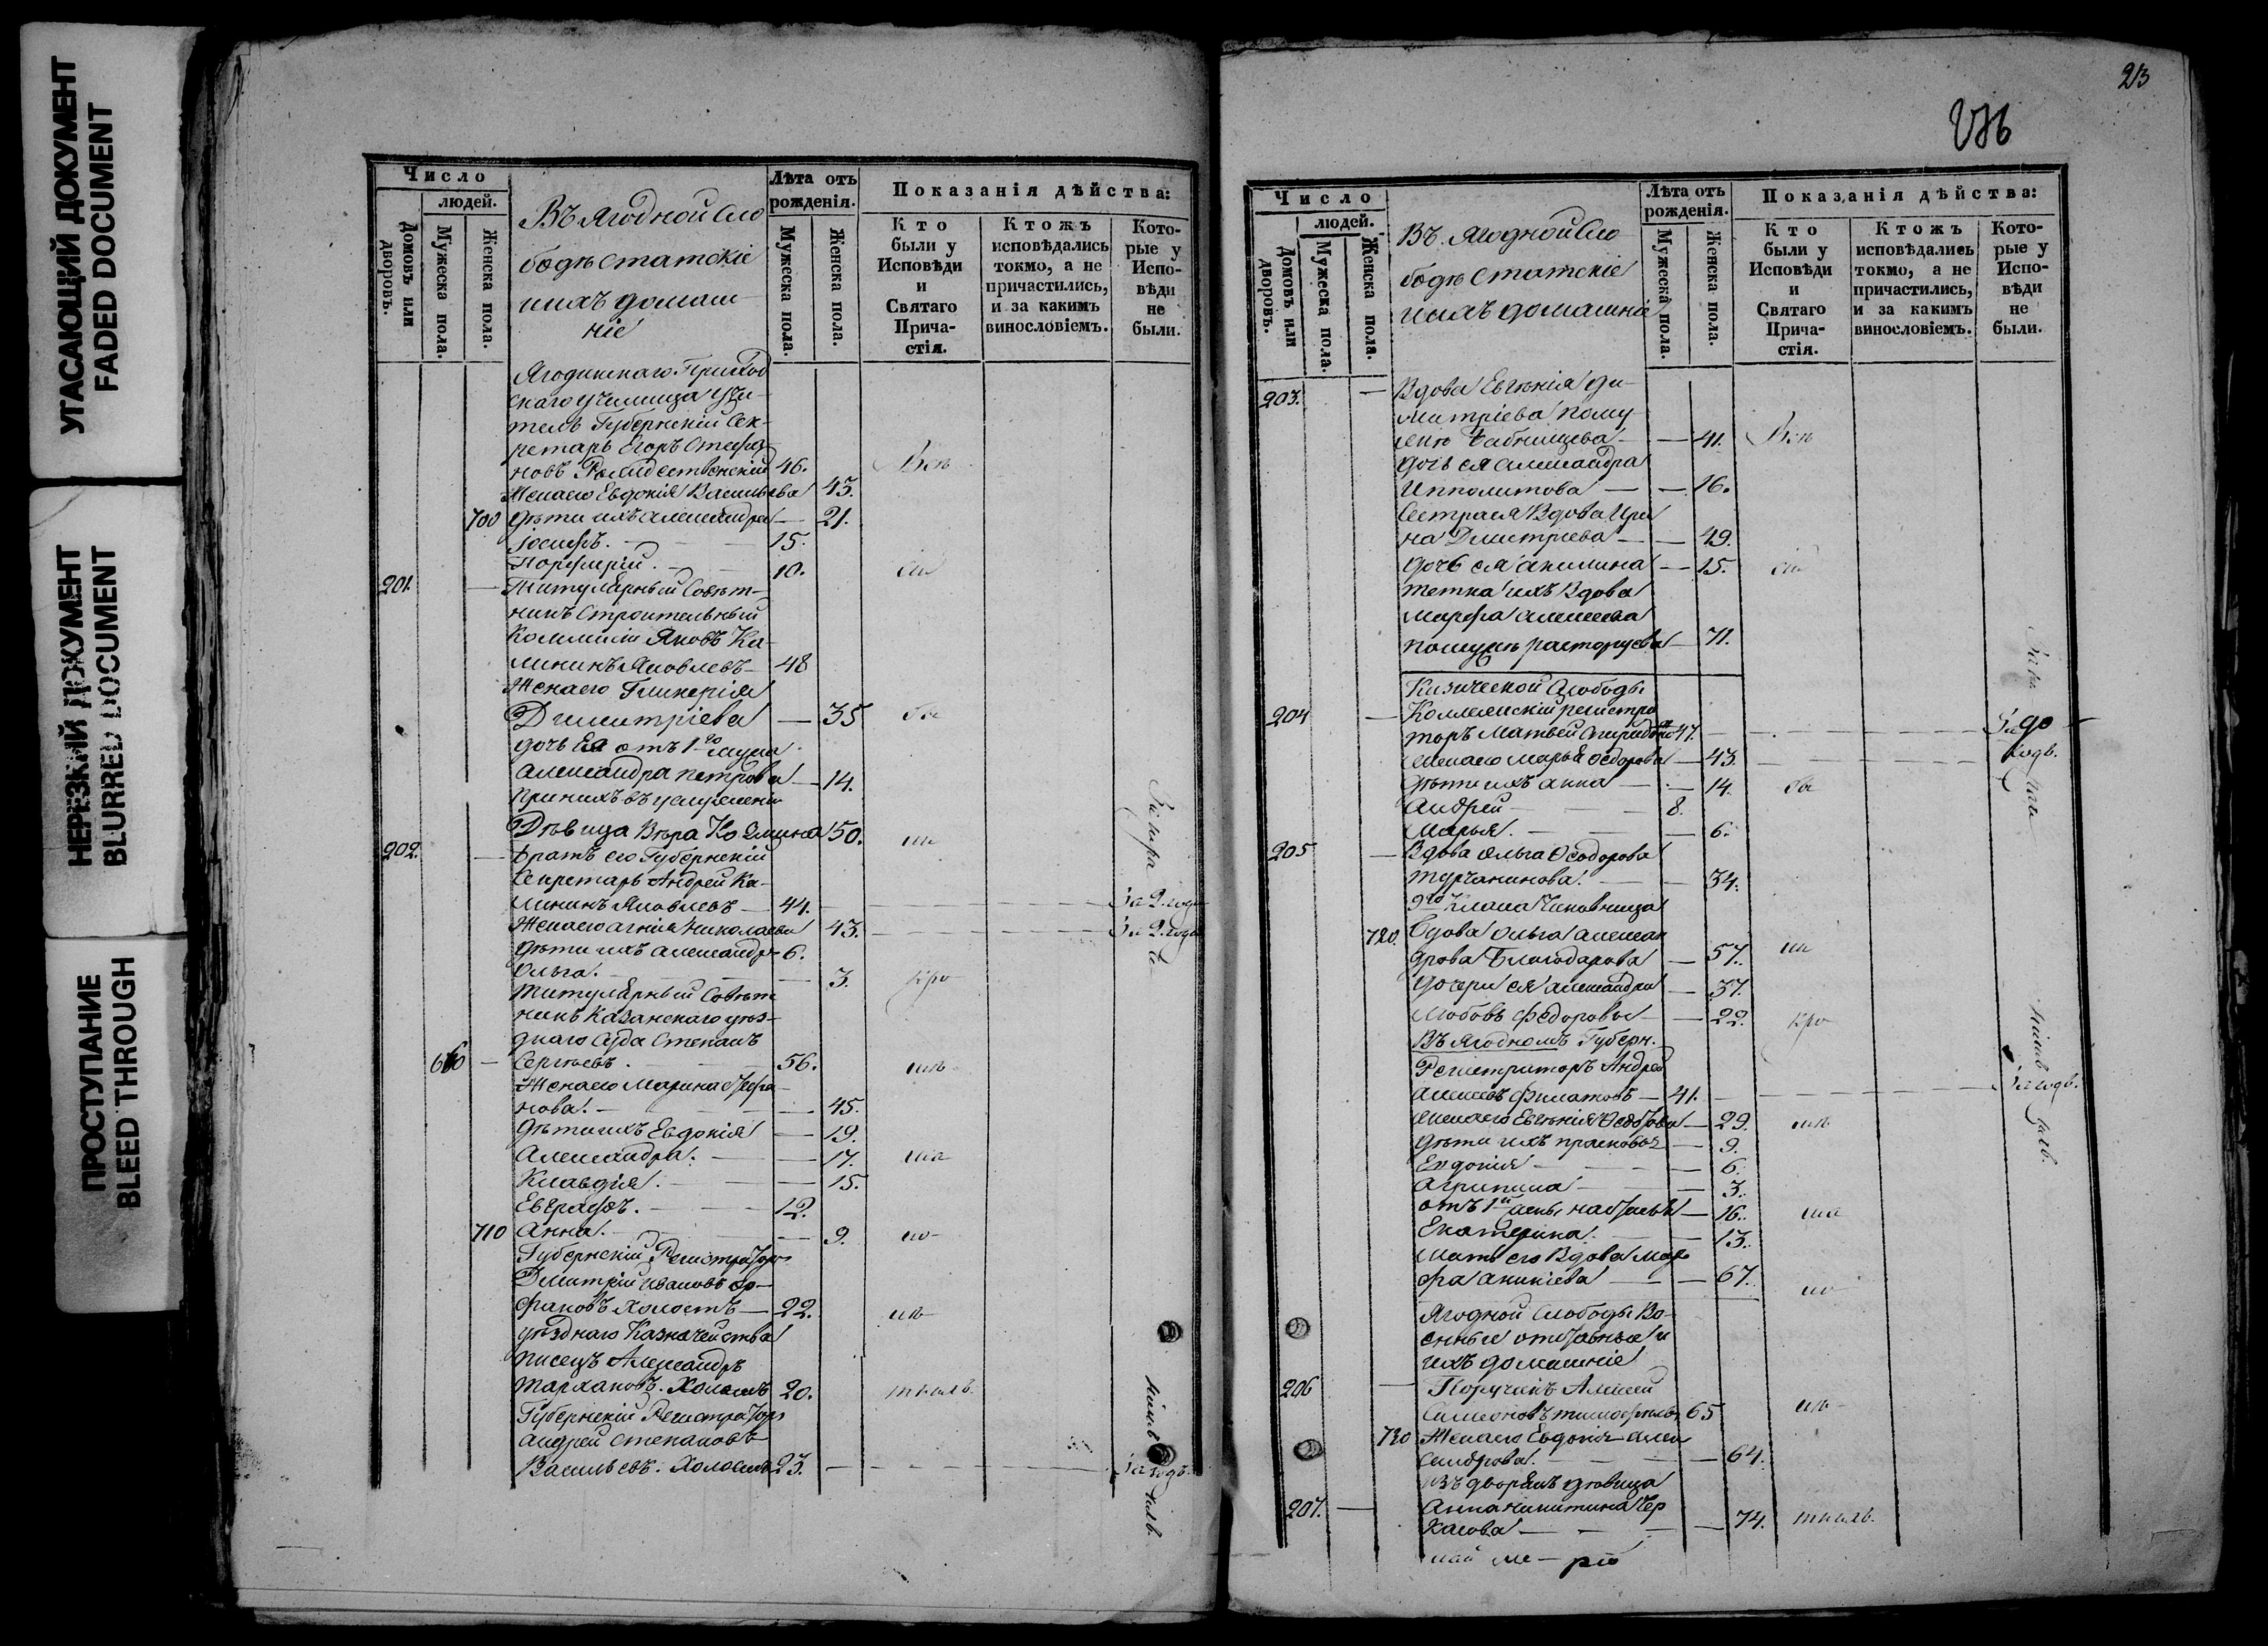 УГАСАЮЩИЙ ДОКУМЕНТ
FADED DOCUMENT
НЕРЕЗКИЙ ДОКУМЕНТ
BLURRED DOCUMENT
ПРОСТУПАНИЕ
BLEED THROUGH
Число
людей.
Домовъ или дворовъ.
Мужеска пола.
Женска пола.
Въ Ягодной Сло
бодѣ Статскіе
ихъ домаш
ніе
Лѣта отъ
рожденія.
Мужеска пола.
Женска пола.
Показанія дѣйства:
Кто
были у
Исповѣди
и
Святаго
Прича-
стія.
Ктожъ
исповѣдались
токмо, а не
причастились,
и за какимъ
винословіемъ.
Кото-
рые у
Испо-
вѣди
не
были.
Ягодинскаго Приход
скаго училища учи-
тель Губернскій Сек-
ретарь Егоръ Стефа-
новъ Рождественскій 46.
Жена его Евдокія Васильева 43.
700 дѣти ихъ Александра — 21.
Іосифъ. 15.
Порфирій. 10.
201. — Титулярный Совѣт-
никъ Строительный
Коммисіи Яковъ Ка-
лининъ Яковлевъ — 48
Жена его Гликерія
Димитріева — 35
дочь Ея отъ 1го мужа
Александра Петрова — 14.
При нихъ въ услуженіи
Дѣвица Вѣра Козмина 50.
202. — Братъ его Губернскій
Секретарь Андрей Ка-
лининъ Яковлевъ — 44. — За 2. года
Жена его Агнія Николаева 43. — За 2. года
дѣти ихъ Александръ 6.
Ольга. — 3.
Титулярный Совѣт
никъ Казанскаго уѣз-
днаго Суда Степанъ
660 — Сергѣевъ. 56.
Жена его Марина Стефа-
нова. — 45.
Дѣти ихъ Евдокія — 19.
Александра. — 17.
Клавдія. — 15.
Евграфъ. — 12.
710 Анна. — 9.
Губернскій Регистраторъ
Дмитрій Ивановъ Ор-
факовъ Холостъ — 22.
уѣзднаго Казначейства
писецъ Александръ
Тархановъ. Холостъ 20.
Губернскій Регистраторъ
Андрей Степановъ
Васильевъ. Холостъ 23. — За годъ.
213
Число
людей.
Домовъ или дворовъ.
Мужеска пола.
Женска пола.
Въ Ягодной Сло
бодѣ Статскіе
ихъ домашніе
Лѣта отъ
рожденія.
Мужеска пола.
Женска пола.
Показанія дѣйства:
Кто
были у
Исповѣди
и
Святаго
Прича-
стія.
Ктожъ
исповѣдались
токмо, а не
причастились,
и за какимъ
винословіемъ.
Кото-
рые у
Испо-
вѣди
не
были.
203. — Вдова Евгенія Ди-
митріева
— 41.
дочь ея Александра
Ипполитова — 16.
Сестра ея Вдова Ири
на Дмитріева — 49.
дочь ея Акилина — 15.
тетка ихъ Вдова
Марфа Алексеева
— 71.
Кизической Слободы
204 — Коллежскій регистра
торъ Матвей 47.
жена его Марья Ѳедорова — 43. годъ.
дѣти ихъ Анна — 14.
Андрей — 8.
Марья. — 6.
205 — Вдова Ольга Ѳеодорова
Турчанинова. — 34.
9го Класа Чиновница
720. Вдова Ольга Алексан
дрова Благодарова — 57.
дочери ея Александра — 37.
Любовь Федоровы — 22.
Въ Ягодномъ Губерн.
Регистраторъ Андрей
Алексеевъ Филатовъ — 41. — За годъ.
жена его Евгенія Ѳедорова — 29.
дѣти ихъ Прасковья — 9.
Евдокія — 6.
Агрипина — 3.
отъ 1й жены Наталья — 16.
Екатерина. — 13.
Мать его Вдова Мар
фа Аникіева — 67.
Ягодной Слободы Во-
енные отставные и
ихъ домашніе
206 — Поручикъ Алексей
Симеоновъ Тимофеевъ 65
730 Жена его Евдокія Алек
сандрова. — 64.
Изъ дворянъ дѣвица
207. — Анна Никитина Чер
касова — 74.